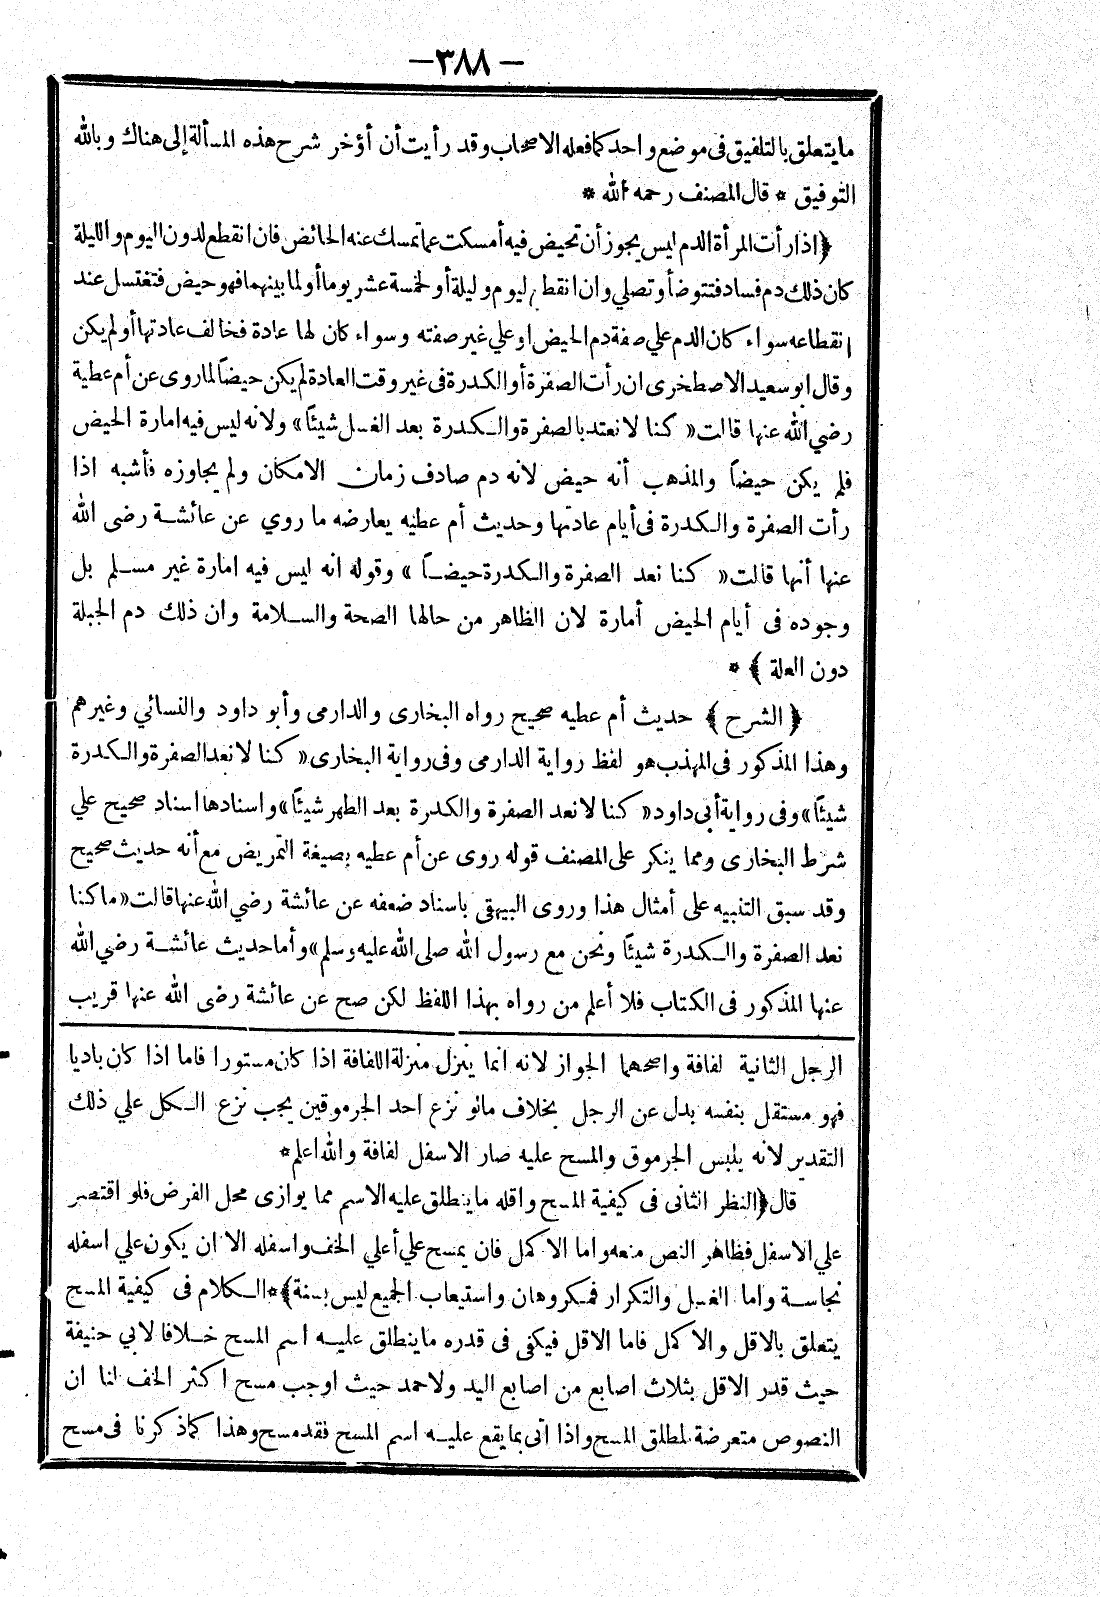 — ٣٨٨ —
ما يتعلق بالتلفيق فى موضع واحد كما فعله الاصحاب وقد رأيت أن أؤخر شرح هذه المسألة إلى هناك وبالله
التوفيق * قال المصنف رحمه الله *
﴿ اذا رأت المرأة الدم لسن يجوز أن تحيض فيه أمسكت عما تمسك عنه الحائض فان انقطع لدون اليوم والليلة
كان ذلك دم فساد فتتوضأ وتصلي وان انقطع ليوم وليلة أو لخمسة عشر يوما أو لما بينهما فهو حيض فتغتسل عند
انقطاعه سواء كان الدم علي صفة دم الحيض او علي غير صفته وسواء كان لها عادة فخالف عادتها أو لم يكن
وقال ابو سعيد الاصطخرى ان رأت الصفرة أو الكدرة فى غير وقت العادة لم يكن حيضاً لما روى عن أم عطية
رضي الله عنها قالت « كنا لا نعتد بالصفرة والكدرة بعد الغسل شيئاً » ولانه ليس فيه امارة الحيض
فلم يكن حيضاً والمذهب أنه حيض لانه دم صادف زمان الامكان ولم يجاوزه فأشبه اذا
رأت الصفرة والكدرة فى أيام عادتها وحديث أم عطيه يعارضه ما روي عن عائشة رضى الله
عنها أنها قالت « كنا نعد الصفرة والكدرة حيضاً » وقوله انه ليس فيه امارة غير مسلم بل
وجوده فى أيام الحيض أمارة لان الظاهر من حالها الصحة والسلامة وان ذلك دم الجبلة
دون العلة ﴾ *
﴿ الشرح ﴾ حديث أم عطيه صحيح رواه البخارى والدارمى وأبو داود والنسائي وغيرهم
وهذا المذكور فى المهذب هو لفظ رواية الدارمى وفى رواية البخارى « كنا لا نعد الصفرة والكدرة
شيئاً » وفى رواية أبى داود « كنا لا نعد الصفرة والكدرة بعد الطهر شيئاً » واسنادها اسناد صحيح علي
شرط البخارى ومما ينكر على المصنف قوله روى عن أم عطيه بصيغة التمريض مع أنه حديث صحيح
وقد سبق التنبيه على أمثال هذا وروى البيهقى باسناد ضعفه عن عائشة رضي الله عنها قالت « ما كنا
نعد الصفرة والكدرة شيئاً ونحن مع رسول الله صلى الله عليه وسلم » وأما حديث عائشة رضي الله
عنها المذكور فى الكتاب فلا أعلم من رواه بهذا اللفظ لكن صح عن عائشة رضى الله عنها قريب
الرجل الثانية لفافة واصحهما الجواز لانه انما ينزل منزلة اللفافة اذا كان مستورا فاما اذا كان باديا
فهو مستقل بنفسه بدل عن الرجل بخلاف مالو نزع احد الجرموقين يجب نزع الكل علي ذلك
التقدير لانه يلبس الجرموق والمسح عليه صار الاسفل لفافة والله اعلم *
قال ﴿ النظر الثانى فى كيفية المسح واقله ما ينطلق عليه الاسم مما يوازى محل الفرض فلو اقتصر
علي الاسفل فظاهر النص منعه واما الاكمل فان يمسح علي أعلي الخف واسفله الا ان يكون علي اسفله
نجاسة واما الغسل والتكرار فمكروهان واستيعاب الجميع ليس بسنة ﴾ * الكلام فى كيفية المسح
يتعلق بالاقل والاكمل فاما الاقل فيكفى فى قدره ما ينطلق عليه اسم المسح خلافا لابي حنيفة
حيث قدر الاقل بثلاث اصابع من اصابع اليد ولاحمد حيث اوجب مسح اكثر الخف لنا ان
النصوص متعرضة لمطلق المسح واذا اتى بما يقع عليه اسم المسح فقد مسح وهذا كما ذكرنا فى مسح